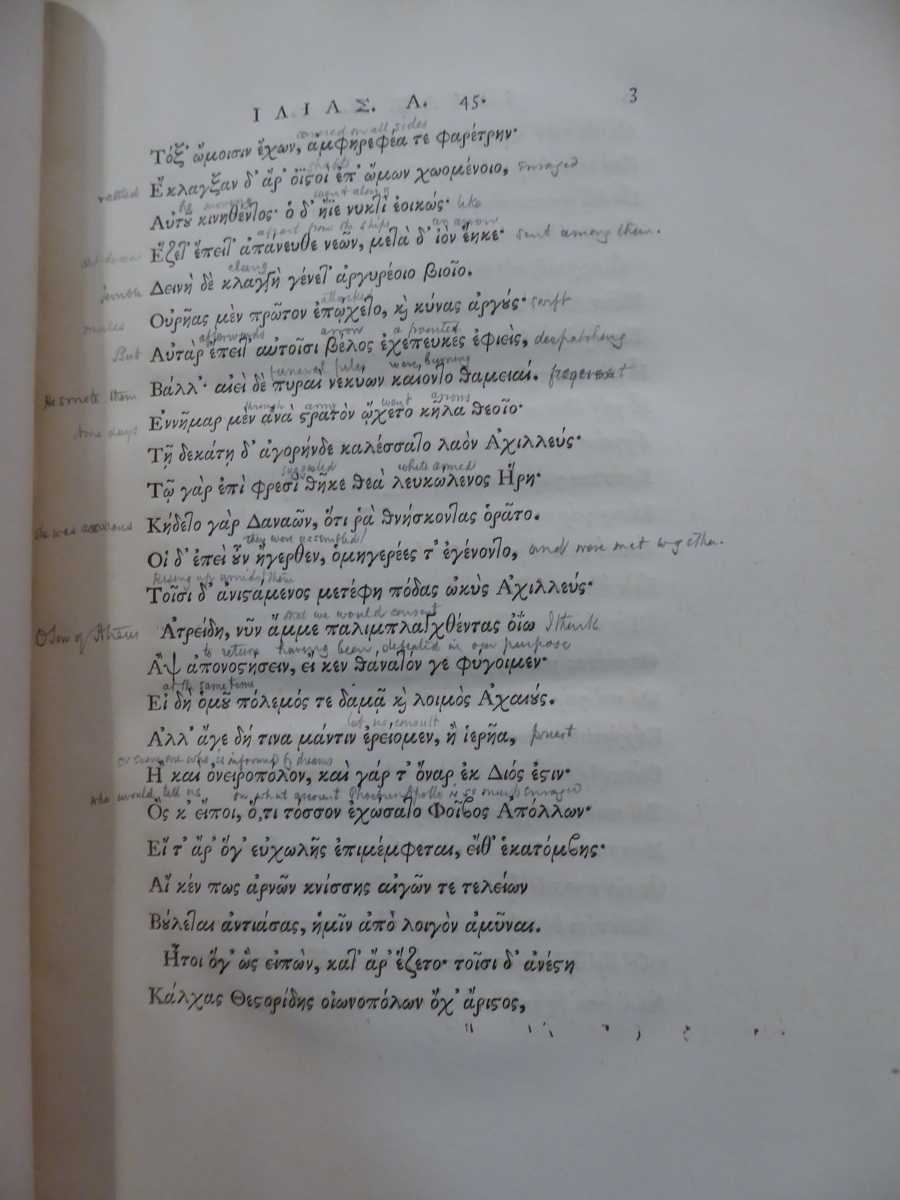 ΙΛΙΑΣ. Α. 45. 3
covered on all sides
Τόξ' ὤμοισιν ἔχων, ἀμφηρεφέα τε φαρέτρην·
shafts
rattled Ἔκλαγξαν δ' ἄρ' ὀϊϛοὶ ἐπ' ὤμων χωομένοιο, enraged
by moving went along
Αὐτȣ κινηθέντος· ὁ δ' ἤϊε νυκτὶ ἐοικώς· like
apart from the ships an arrow
sat down Ἕζετ' ἔπειτ' ἀπάνευθε νεῶν, μετὰ δ' ἰὸν ἕηκε· sent among them.
clang
terrible Δεινὴ δὲ κλαγγὴ γένετ' ἀργυρέοιο βιοῖο.
attacked
mules Οὐρῆας μὲν πρῶτον ἐπῴχετο, ϗ κύνας ἀργȣ́ς· swift
afterwards arrow a pointed
But Αὐτὰρ ἔπειτ' αὐτοῖσι βέλος ἐχεπευκὲς ἐφιεὶς, despatching
funeral piles were burning
He smote them Βάλλ'· αἰεὶ δὲ πυραὶ νεκύων καίοντο θαμειαί. frequent
through army went arrows
nine days Ἐννῆμαρ μὲν ἀνὰ ϛρατὸν ᾤχετο κῆλα θεοῖο·
Τῇ δεκάτῃ δ' ἀγορήνδε καλέσσατο λαὸν Ἀχιλλεύς·
suggested white armed
Τῷ γὰρ ἐπὶ φρεσὶ θῆκε θεὰ λευκώλενος Ἥρη·
she was anxious Κήδετο γὰρ Δαναῶν, ὅτι ῥὰ θνήσκοντας ὁρᾶτο.
they were assembled
Οἱ δ' ἐπεὶ ȣ̓͂ν ἤγερθεν, ὁμηγερέες τ' ἐγένοντο, and were met together.
Rising up amidst them
Τοῖσι δ' ἀνιϛάμενος μετέφη πόδας ὠκὺς Ἀχιλλεύς·
that we would consent
O Son of Atreus Ἀτρείδη, νῦν ἄμμε παλιμπλαγχθέντας ὀΐω I think
to return having been defeated in our purpose
Ἂψ ἀπονοϛήσειν, εἴ κεν θάνατόν γε φύγοιμεν·
at the same time
Εἰ δὴ ὁμȣ͂ πόλεμός τε δαμᾷ ϗ λοιμὸς Ἀχαιȣ́ς.
let us consult
Ἀλλ' ἄγε δή τινα μάντιν ἐρείομεν, ἢ ἱερῆα, priest
or some one who is informed by dreams
Ἢ καὶ ὀνειροπόλον, καὶ γάρ τ' ὄναρ ἐκ Διός ἐϛιν·
who would tell us on what account Phoebus Apollo is so much enraged
Ὅς κ' εἴποι, ὅ,τι τόσσον ἐχώσατο Φοῖβος Ἀπόλλων·
Εἴ τ' ἄρ' ὅγ' εὐχωλῆς ἐπιμέμφεται, εἴθ' ἑκατόμβης·
Αἴ κέν πως ἀρνῶν κνίσσης αἰγῶν τε τελείων
Βȣ́λεται ἀντιάσας, ἡμῖν ἀπὸ λοιγὸν ἀμῦναι.
Ἤτοι ὅγ' ὣς εἰπὼν, κατ' ἄρ' ἕζετο· τοῖσι δ' ἀνέϛη
Κάλχας Θεϛορίδης οἰωνοπόλων ὄχ' ἄριϛος,